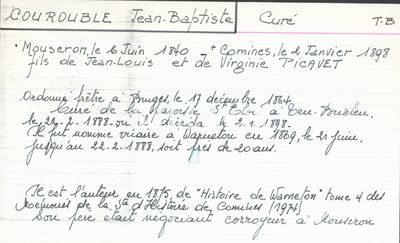 COUROUBLE Jean-Baptiste Curé T.B
• Mouscron, le 6 Juin 1840 + Comines, le 2 Janvier 1898
fils de Jean-Louis et de Virginie PICAVET
Ordonné prêtre à Bruges, le 17 décembre 1864.
Curé de la paroisse St Eloi à
le 22-2-1888 où il décéda le 2.1.1898.
Il fut nommé vicaire à Warneton en 1869, le 21 juin,
jusqu'au 22.2.1888, soit près de 20 ans.
Il est l'auteur en 1875, de "Histoire de Warneton" tome 4 des
Mémoires de la Sté d'Histoire de Comines (1974)
Son père était négociant corroyeur à Mouscron